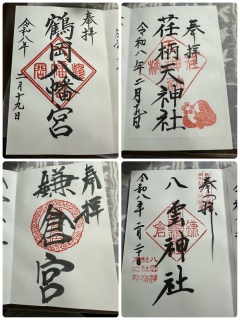 奉拝
鶴岡八幡宮
令和八年
二月十九日
奉拝
荏柄天神社
令和八年二月十九日
奉拝
鎌倉宮
奉拝
鎌倉
八雲神社
令和八年